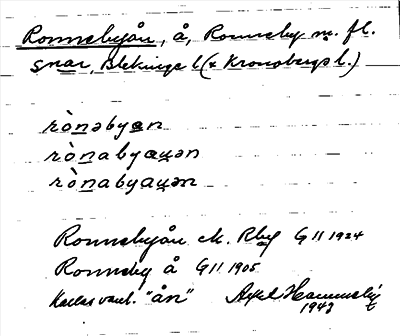 Ronnebyån, å, Ronneby m. fl.
snar, Blekinge l. (& Kronobergs l.)
rònəbyan
rònabyaųən
rònabyaųən
Ronnebyån M. Rby G II 1924
Ronneby å G II 1905
Kallas vanl. "ån" Axel
1943